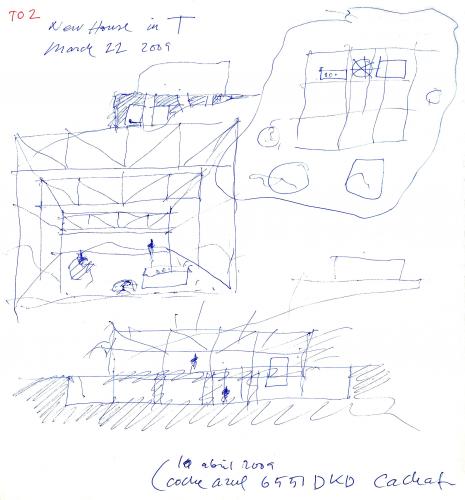 TO 2
New House in T
March 22 2009
10 abril 2009
coche azul 6551 DKD